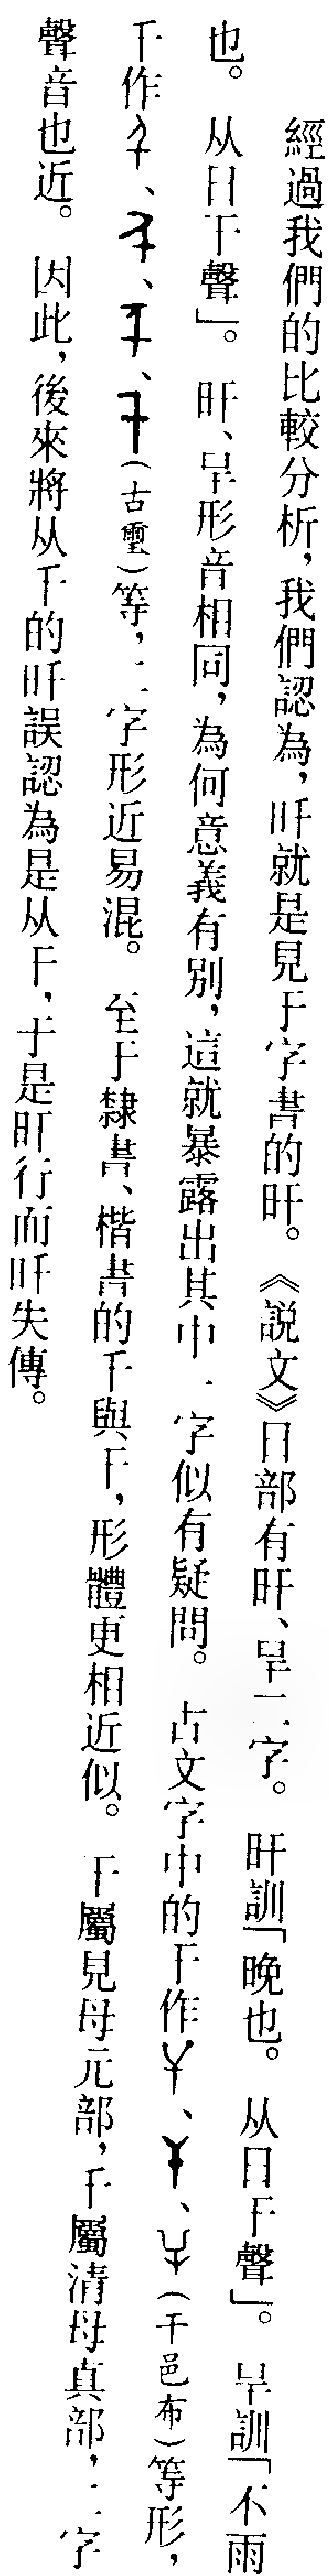 經過我們的比較分析，我們認為，旰就是見于字書的旰。《説文》日部有旰、旱二字。旰訓「晚也。从日干聲」。旱訓「不雨
也。从日干聲」。旰、旱形音相同，為何意義有別，這就暴露出其中一字似有疑問。古文字中的干作、、（干邑布）等形，
千作、、、（古璽）等，二字形近易混。至于隸書、楷書的千與干，形體更相近似。干屬見母元部，千屬清母真部，二字
聲音也近。因此，後來將从千的旰誤認為是从干，于是旰行而旰失傳。